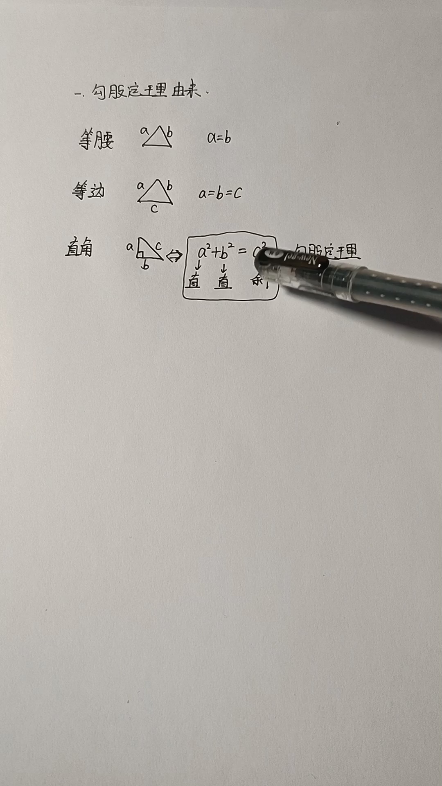 一. 勾股定理由来.
等腰 a b a=b
等边 a b c a=b=c
直角 a c b ⇔ a²+b²=c² 勾股定理
↓ ↓
直 直